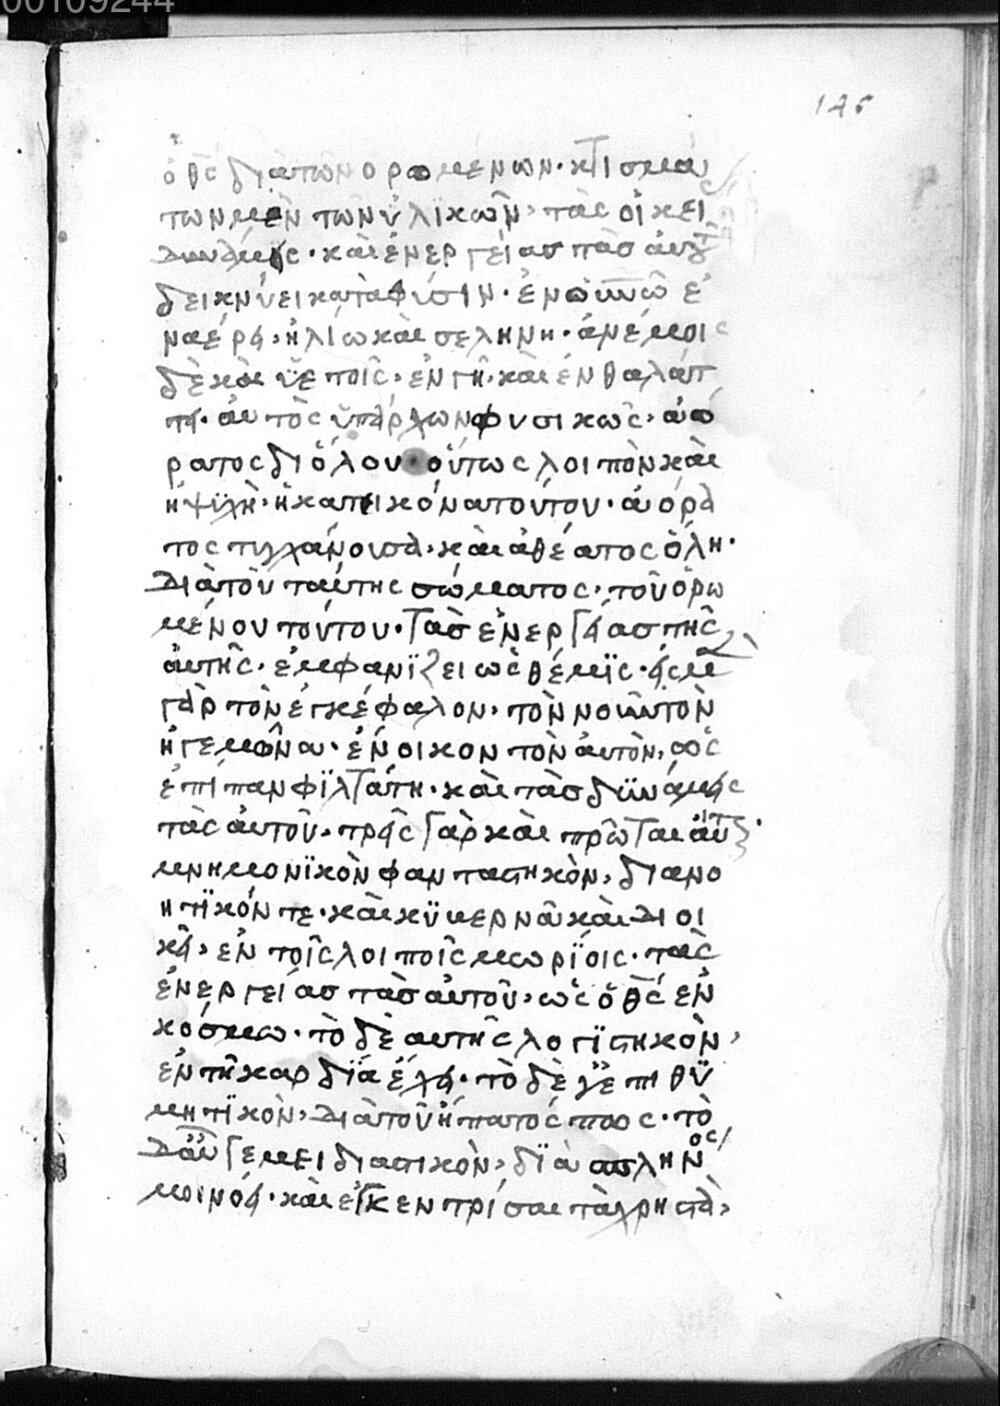 00109244
ὁ θς διὰ τῶν ὁρομένων· κτισμά
των μὲν τῶν ὑλϊκῶν, τὰς οἰκεί
δυνάμεις· καὶ ἐνεργείας τὰς αὐτ
δεικνύει κατὰ φύσιν· ἐν
ναέρϊ, ἡλίω καὶ σελήνη· ἀνέμοις
δὲ καὶ ὑετοῖς, ἐν γῆ· καὶ ἐν θαλάττ
τη· αὐτὸς ὑπάρχων φυσικῶς, ἀό
ρατος διόλου· οὕτως λοιπὸν καὶ
ἡ ψϋχὴ· ἡ κατ εικόνα τούτου· ἀόρα
τος τυγχάνουσα, καὶ ἀθέατος ὅλη·
διὰ τοῦ ταύτης σώματος, τοῦ ὁρω
μένου τούτου· τὰς ἐνεργείας τῆς
αὐτῆς· ἐμφανΐζει ὡς θέμϊς·
γὰρ τὸν ἐγκέφαλον, τὸν νοῦν τὸν
ἡγεμῶνα· ἔνοικον τὸν αὐτὸν,
ἐπὶ πανφϊλτάτη· καὶ τὰς δϋνάμεις
τὰς αὐτοῦ, τρεῖς γὰρ καὶ πρῶται
μνημονϊκὸν φανταστηκὸν, διανο
ητϊκόν τε· καὶ κϋβερνᾶ καὶ διοι
κεῖ, ἐν τοῖς λοιποῖς μωρΐοις· τὰς
ἐνεργείας τὰς αὐτοῦ, ὡς ὁ θς ἐν
κόσμω· τὸ δὲ αυτῆς λογϊστηκὸν,
ἐν τῆ καρδΐα ἔχει· τὸ δὲ γε πιθϋ
μητϊκὸν, διὰ τοῦ ἥπατός πως· τὸ
δ αὖ γεμειδιαστικὸν, δϊὰ σπληνὸς
κοινόϊ· καὶ ἐγκεντρίσαι τὰ χρηστὰ,